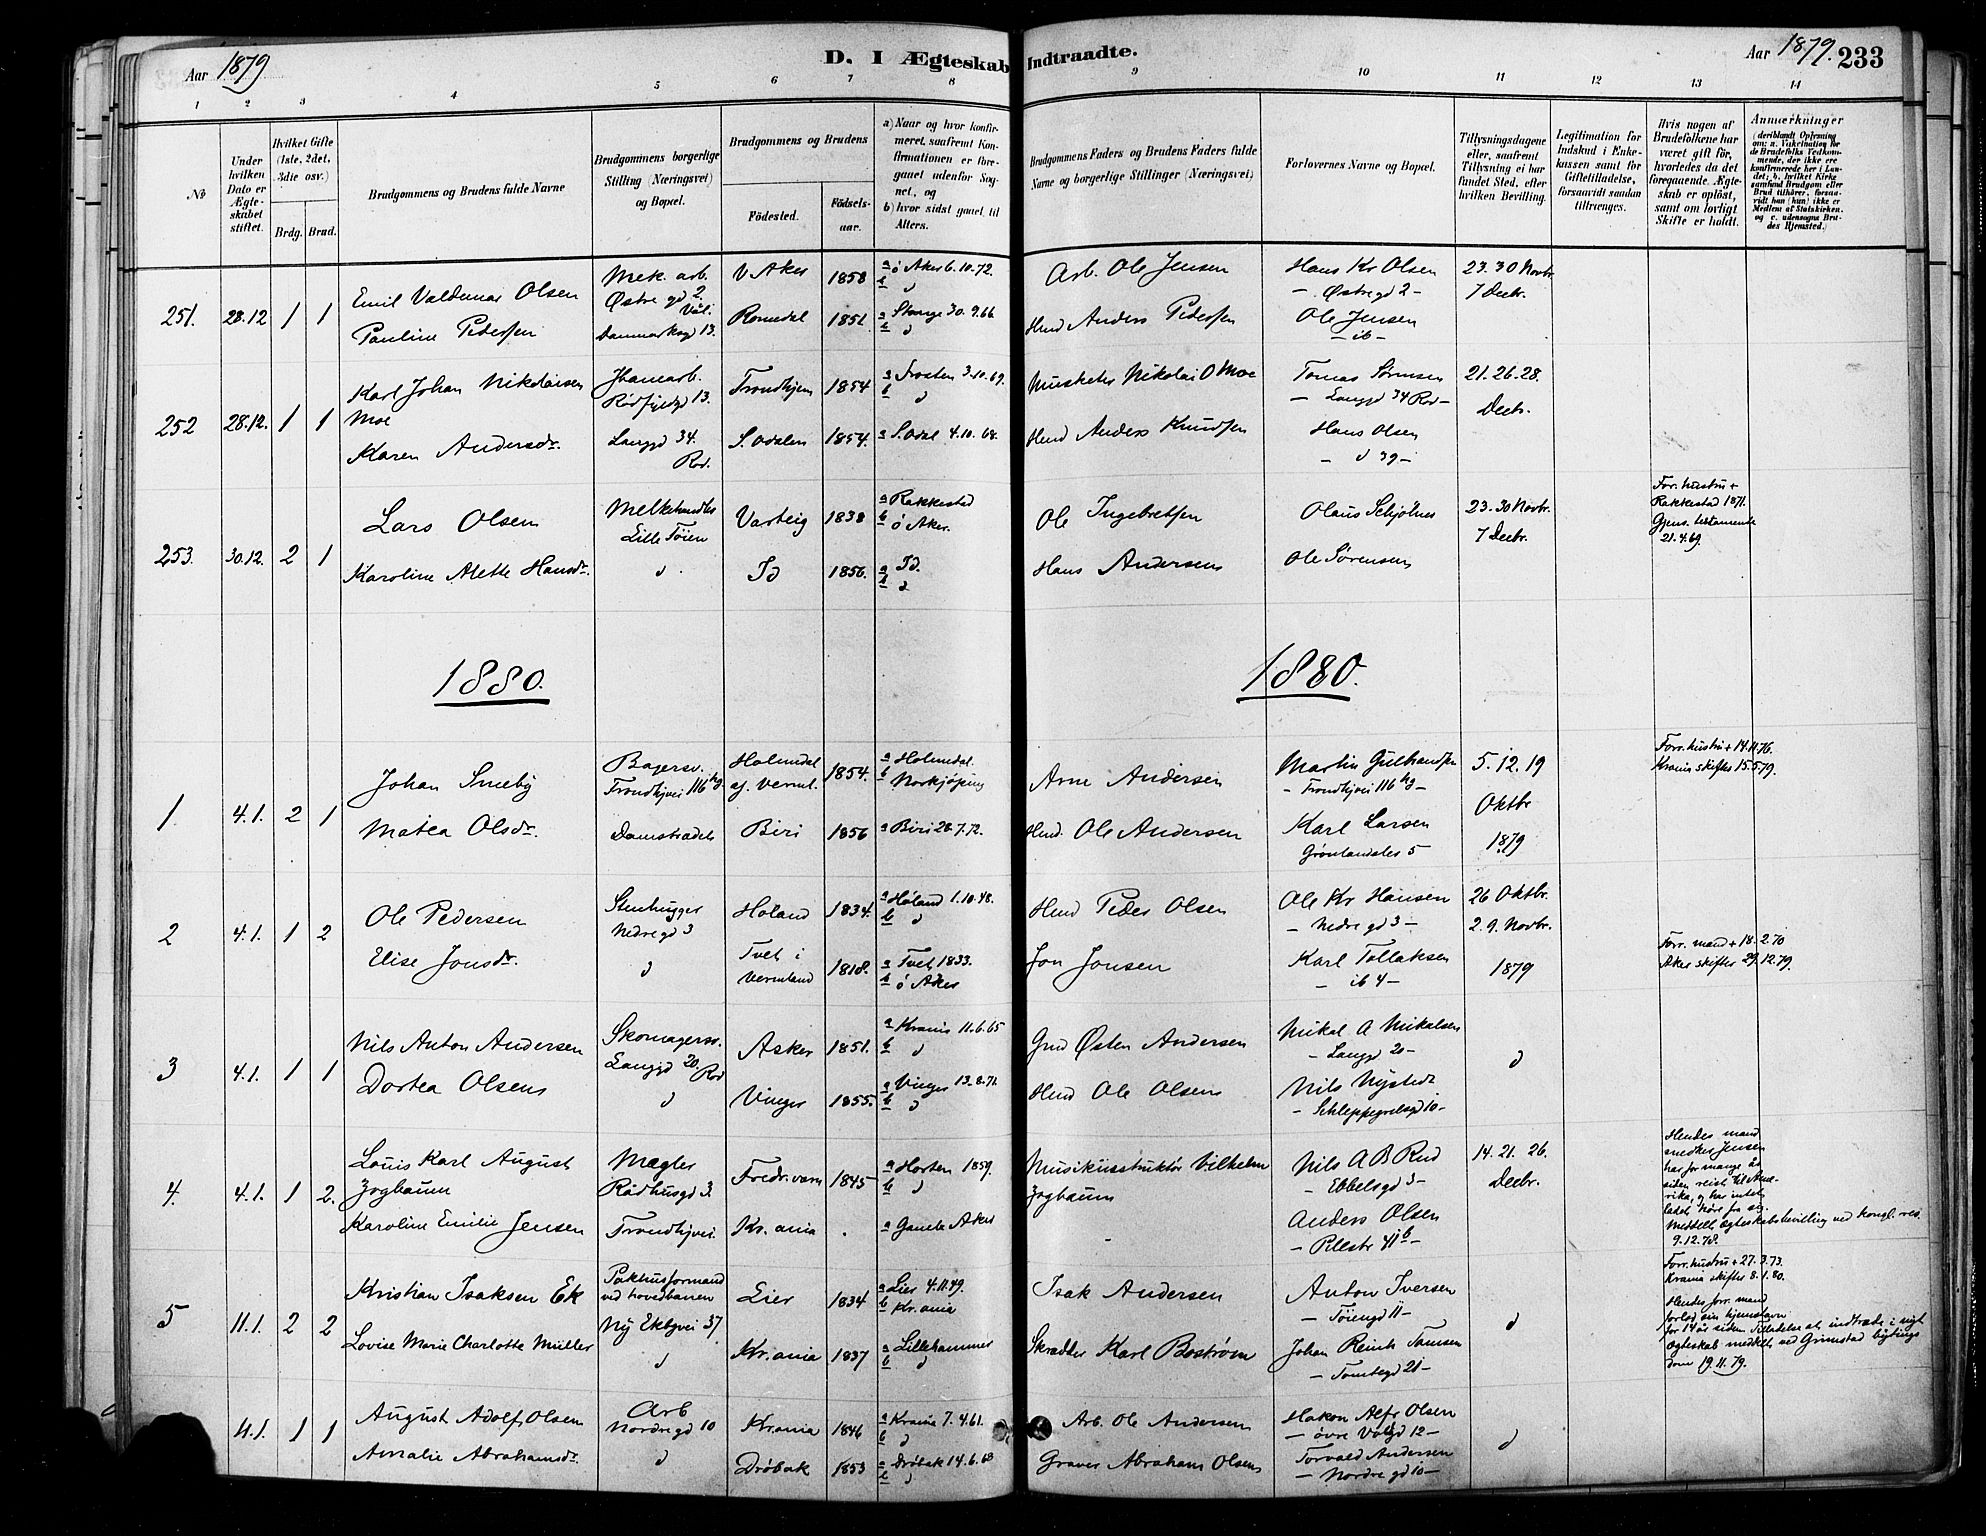 Aar 1879
D. I Ægteskab Indtraadte.
Aar 1879. 233
1 2 3 4 5 6 7 8 9 10 11 12 13 14
No
Under hvilken Dato er Ægteskabet stiftet.
Hvilket Gifte (1ste, 2det, 3die osv.)
Brdg. Brud.
Brudgommens og Brudens fulde Navne
Brudgommens borgerlige Stilling (Næringsvei) og Bopæl.
Brudgommens og Brudens
Fødested.
Fødsels-aar.
a) Naar og hvor konfirmeret, saafremt Konfirmationen er foregaaet udenfor Sognet, og
b) hvor sidst gaaet til Alters.
Brudgommens Faders og Brudens Faders fulde Navne og borgerlige Stillinger (Næringsvei)
Forlovernes Navne og Bopæl.
Tillysningsdagene eller, saafremt Tillysning ei har fundet Sted, efter hvilken Bevilling.
Legitimation for Indskud i Enkekassen samt for Giftetilladelse, forsaavidt saadan tiltrænges.
Hvis nogen af Brudefolkene har været gift før, hvorledes da det foregaaende Ægteskab er opløst, samt om lovligt Skifte er holdt.
Anmærkninger (deriblandt Oplysning om: a. Vakcination for de Brudefolks Vedkommende, der ikke ere konfirmerede her i Landet; b. hvilket Kirkesamfund Brudgom eller Brud tilhører, forsaavidt han (hun) ikke er Medlem af Statskirken, og c. udensogns Brudes Hjemsted.)
251. 28.12 1 1 Emil Valdemar Olsen Mek. arb. Østre gd 2 V Aker 1858 a ø Aker 6.10.72. Arb. Ole Jensen Hans Kr Olsen - Østre gd 2 - 23. 30 Novbr. 7 Decbr.
Pauline Pedersen Danmarksgd 13. Romedal 1851. a Stange 30.9.66 Anders Pedersen Ole Jensen - ib -
252 28.12. 1 1 Karl Johan Nikolaisen Moe Trondhjem 1854 a Frosten 3.10.69. Musketer Nikolai O Moe Tomas Sørensen - Langgd 34 Rod - 21. 26. 28. Decbr.
Karen Andersdr. Langgd 34. Rod. S. Odalen 1854. a S. Odal 4.10.68. Anders Knudsen Hans Olsen - d 39 -
253. 30.12. 2 1 Lars Olsen Melkehandler Lille Tøien Varteig 1838 a Rakkestad b ø Aker. Ole Ingebretsen Olaus Schjølnes 23. 30 Novbr. 7 Decbr. Forr. hustru + Rakkestad 1871. Gjens. testamente 21.4.69.
Karoline Alette Hansdr. d Id 1856. a Id. b d Hans Andersen Ole Sørensen
1880. 1880.
1. 4.1. 2 1 Johan Smeby Bagersv. Trondhjvei 116 hg Holmdal af Verml. 1854. a Holmdal. b Norkjøping Arne Andersen Martin Gulbrandsen - Trondhjvei 116 hg - 5. 12. 19 Oktbr 1879 Forr. hustru + 14.11.76. Krania skifter 15.5.79.
Matea Olsdr. Damstrædet Biri 1856 a Biri 28.7.72. Ole Andersen Karl Larsen Grønlandsler 5 -
2 4.1. 1 2 Ole Pedersen Stenhugger Nedre gd 3 Høland 1834. a Høland 1.10.48. b d Peder Olsen Ole Kr Hansen - Nedre gd 3 - 26 Oktbr. 2. 9. Novbr. 1879
Elise Jonsdr. d Tvet i Vermland 1818. a Tvet 1833. b ø Aker Jon Jonsen Karl Tollaksen - ib 4 - Forr. mand + 18.2.70 Aker skifter 29.12.79.
3 4.1. 1 1 Nils Anton Andersen Skomagersv. Langgd 20. Rod Asker 1851. a Krania 11.6.65 b d Østen Andersen Mikal A Mikalsen - Langgd 20 - d
Dortea Olsen d Vinger 1855. a Vinger 13.8.71. b d Ole Olsen Nils Nystedt - Schleppegrelsgd 10 -
4. 4.1. 1 2. Louis Karl August Zogbaum Mægler Rådhusgd 3. Fredr.værn 1845 a Horten 1859. b d Musikinstruktør Vilhelm Zogbaum Nils A B Rud - Ebbelsgd 3 - 14. 21. 26. Decbr. Hendes mand snedker Jensen har for mange år siden reist til Amerika, og har intet ladet høre fra sig. Meddelt ægteskabsbevilling ved kongl. res. 9.12.78.
Karoline Emilie Jensen Trondhjvei. Kr.ania . a Gamle Aker - Anders Olsen - Pilestr 41 b -
5 11.1. 2 2 Kristian Isaksen Ek Pakhusformand ved hovedbanen Ny Ekbgvei 37 Lier 1834 a Lier 4.11.49. b Kr.ania Isak Andersen Anton Iversen - Tøiengd 11 - d Forr. hustru + 27.3.73. Krania skifter 8.1.80.
Lovise Marie Charlotte Müller d Kr.ania 1837 a Lillehammer b d Skrædder Karl Bostrøm Johan Reinh Tamsen - Tomtegd 21 - Hendes forr. mand forlod sin hjemstavn for 14 år siden. Tilladelse at indtræde i nyt ægteskab meddelt ved Grimstad bytings dom 19.11.79.
4.1. 1 1 August Adolf Olsen Arb Nordre gd 10 Kr.ania 1846 a Krania 7.4.61. b d Arb. Ole Andersen Hakon Alfr Olsen - øvre Volgd 12 - d
Amalie Abrahamsdr. d Drøbak 1853 a Drøbak 14.6.68 b d Graver Abraham Olsen Torvald Andersen - Nordre gd 10 -